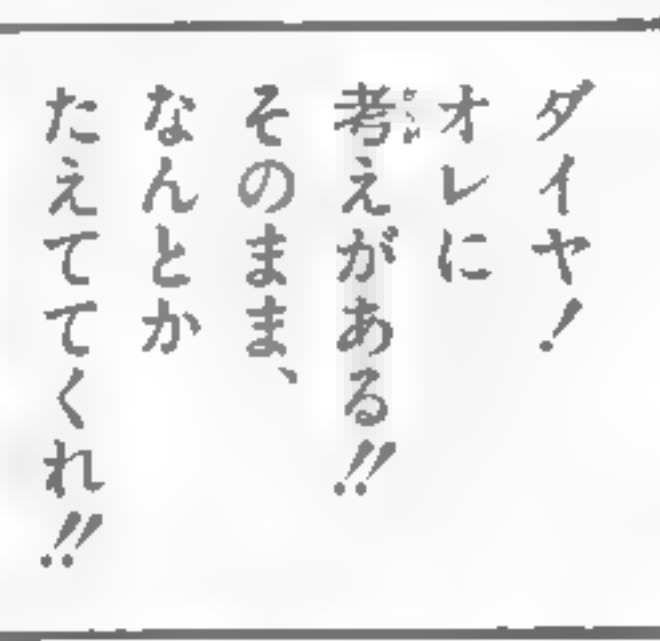 ダイヤ！
オレに
考えがある!!
そのまま、
なんとか
たえててくれ!!